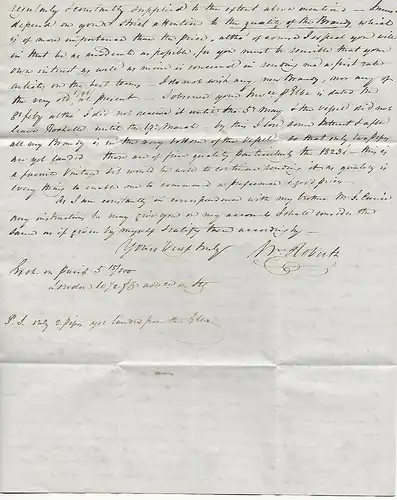 regularly & constantly supplied to the extent above mentioned — I must
depend on your strict attention to the quality of the Brandy, which
is of more importance than the price, altho' of course I expect you will
in that be as moderate as possible, for you must be sensible that your
own interest as well as mine is concerned in sending me a first rate
article on the best terms — I do not wish any new Brandy, nor any of
the very old at present — I observed your Invce p Eliza is dated the
8th feby altho I did not receive it until the 5th May & the vessel did not
leave Rochelle until the 19th March by this I lose some Interest & after
all my Brandy is in the very bottom of the vessel, so that only two pipes
are yet landed these are of fine quality particularly the 1823s — this is
a favorite Vintage & it would be well to continue sending it as quality is
every thing to enable me to command a preference & good price —
As I am constantly in correspondence with my brother M. S.
any instruction he may give you on my account I shall consider the
same as if given by myself & ratify them accordingly —
Yours Very Truly
Wm Roberts
Exch. on Paris 5
London 10
P.S. only 2 pipes yet landed from the Eliza